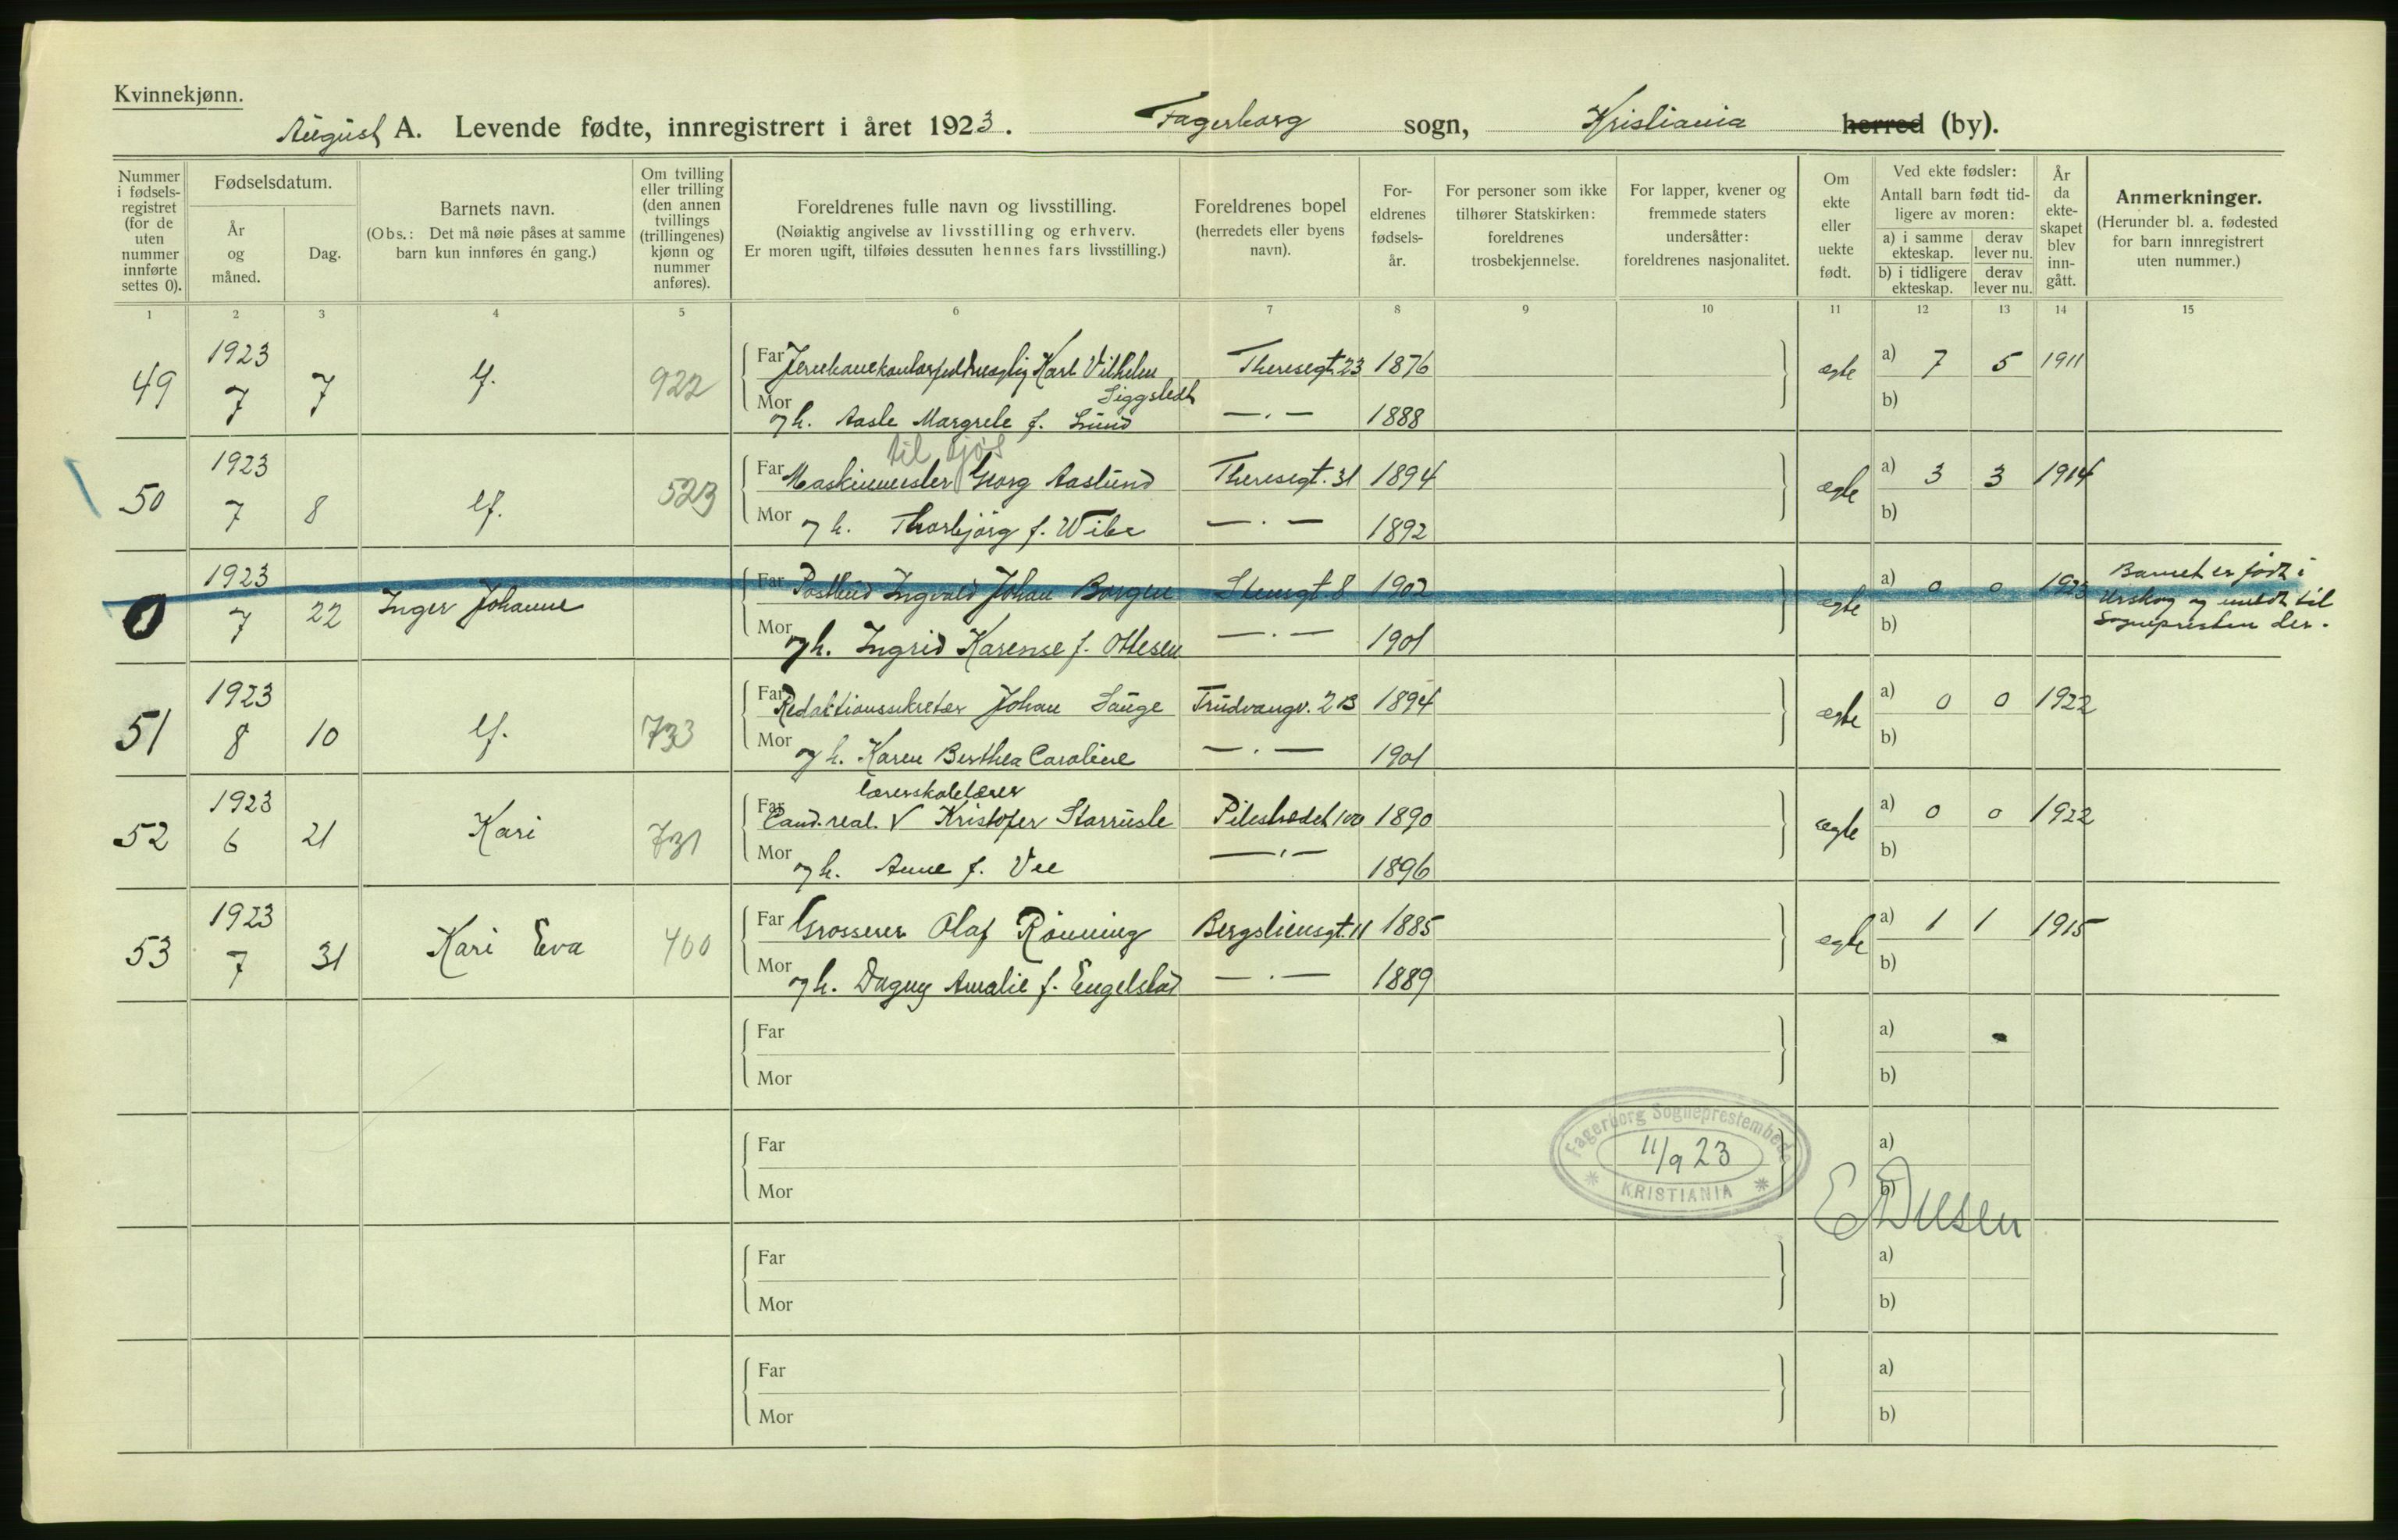 Kvinnekjønn.
August A. Levende fødte, innregistrert i året 1923. Fagerborg sogn, Kristiania herred (by).
Nummer i fødsels-registret (for de uten nummer innførte settes 0).
Fødselsdatum.
År og måned.
Dag.
Barnets navn.
(Obs.: Det må nøie påses at samme barn kun innføres én gang.)
Om tvilling eller trilling (den annen tvillings (trillingenes) kjønn og nummer anføres).
Foreldrenes fulle navn og livsstilling.
(Nøiaktig angivelse av livsstilling og erhverv.
Er moren ugift, tilføies dessuten hennes fars livsstilling.)
Foreldrenes bopel (herredets eller byens navn).
For-eldrenes fødsels-år.
For personer som ikke tilhører Statskirken: foreldrenes trosbekjennelse.
For lapper, kvener og fremmede staters undersåtter: foreldrenes nasjonalitet.
Om ekte eller uekte født.
Ved ekte fødsler:
Antall barn født tid-ligere av moren:
a) i samme ekteskap.
derav lever nu.
b) i tidligere ekteskap.
derav lever nu.
År da ekte-skapet blev inn-gått.
Anmerkninger.
(Herunder bl. a. fødested for barn innregistrert uten nummer.)
1 2 3 4 5 6 7 8 9 10 11 12 13 14 15
49 1923 7 7 lf. 922 Far Karl Vilhelm Siggstedt Theresegt. 23 1876 egte a) 7 5 1911
Mor og h. Aasle Margrete f. Lund —.— 1888 b)
til sjøs
50 1923 7 8 lf. 523 Far Maskinmester Georg Aaslund Theresegt. 31 1894 egte a) 3 3 1914
Mor og h. Thorbjørg f. Wibe —.— 1892 b)
0 1923 7 22 Inger Johanne Far Postbud Ingvald Johan Borgen Stensgt 8 1902 egte a) 0 0 1923 Barnet er født i Urskog og meldt til Sognepresten der.
Mor og h. Ingrid Karense f. Ottesen —.— 1901 b)
51 1923 8 10 lf. 733 Far Redaktionssekretær Johan Lange Trudvangv. 2B 1894 egte a) 0 0 1922
Mor og h. Karen Berthea Caroline —.— 1901 b)
lærerskolelærer
52 1923 6 21 Kari 731 Far Cand. real. V Kristofer Starrusle Pilestrædet 100 1890 egte a) 0 0 1922
Mor og h. Anne f. Vee —.— 1896 b)
53 1923 7 31 Kari Eva 400 Far Grosserer Olaf Rønning Bergsliensgt. 11 1885 egte a) 1 1 1915
Mor og h. Dagny Amalie f. Engelstad —.— 1889 b)
Far a)
Mor b)
Far a)
Mor b)
Fagerborg Sogneprestembede
11/9 23
KRISTIANIA
Far a)
Mor b)
Far a)
Mor b)